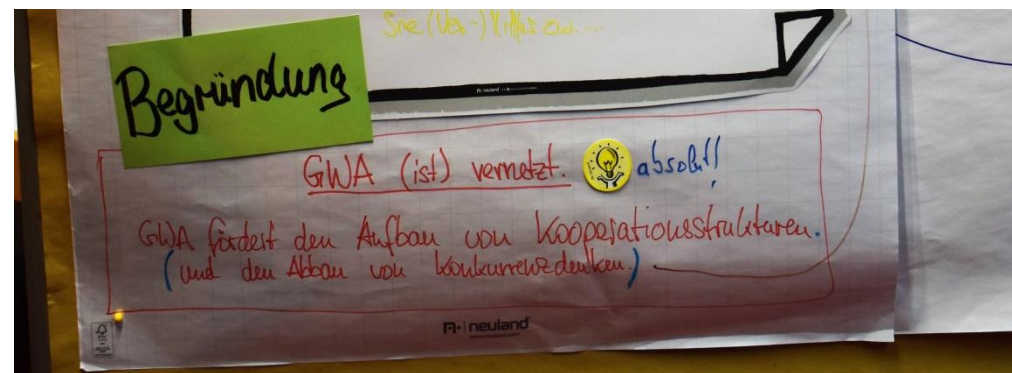 Sie (Ver-)
Begründung
neuland
GWA (ist) vernetzt. absolut!
GWA fördert den Aufbau von Kooperationsstrukturen.
(und den Abbau von Konkurrenzdenken.)
neuland